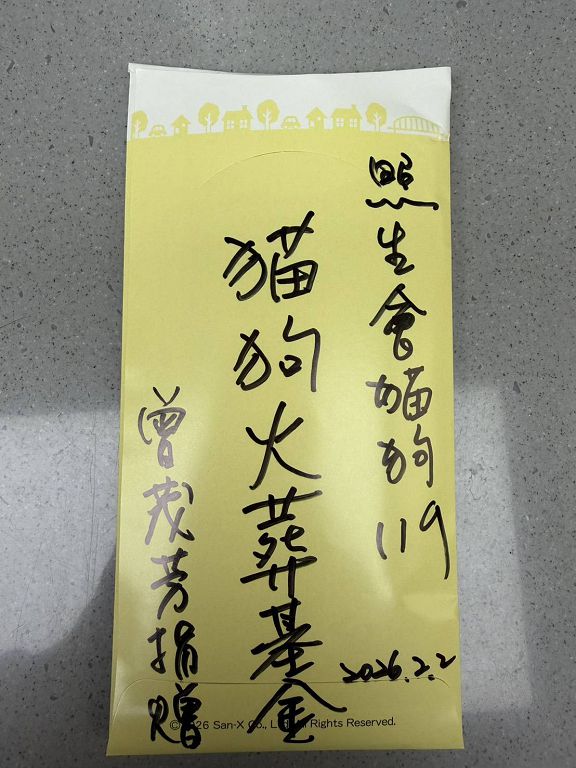 照生會貓狗119
2026.2.2
貓狗火葬基金
曾茂芳捐贈
©2026 San-X Co., Ltd. All Rights Reserved.